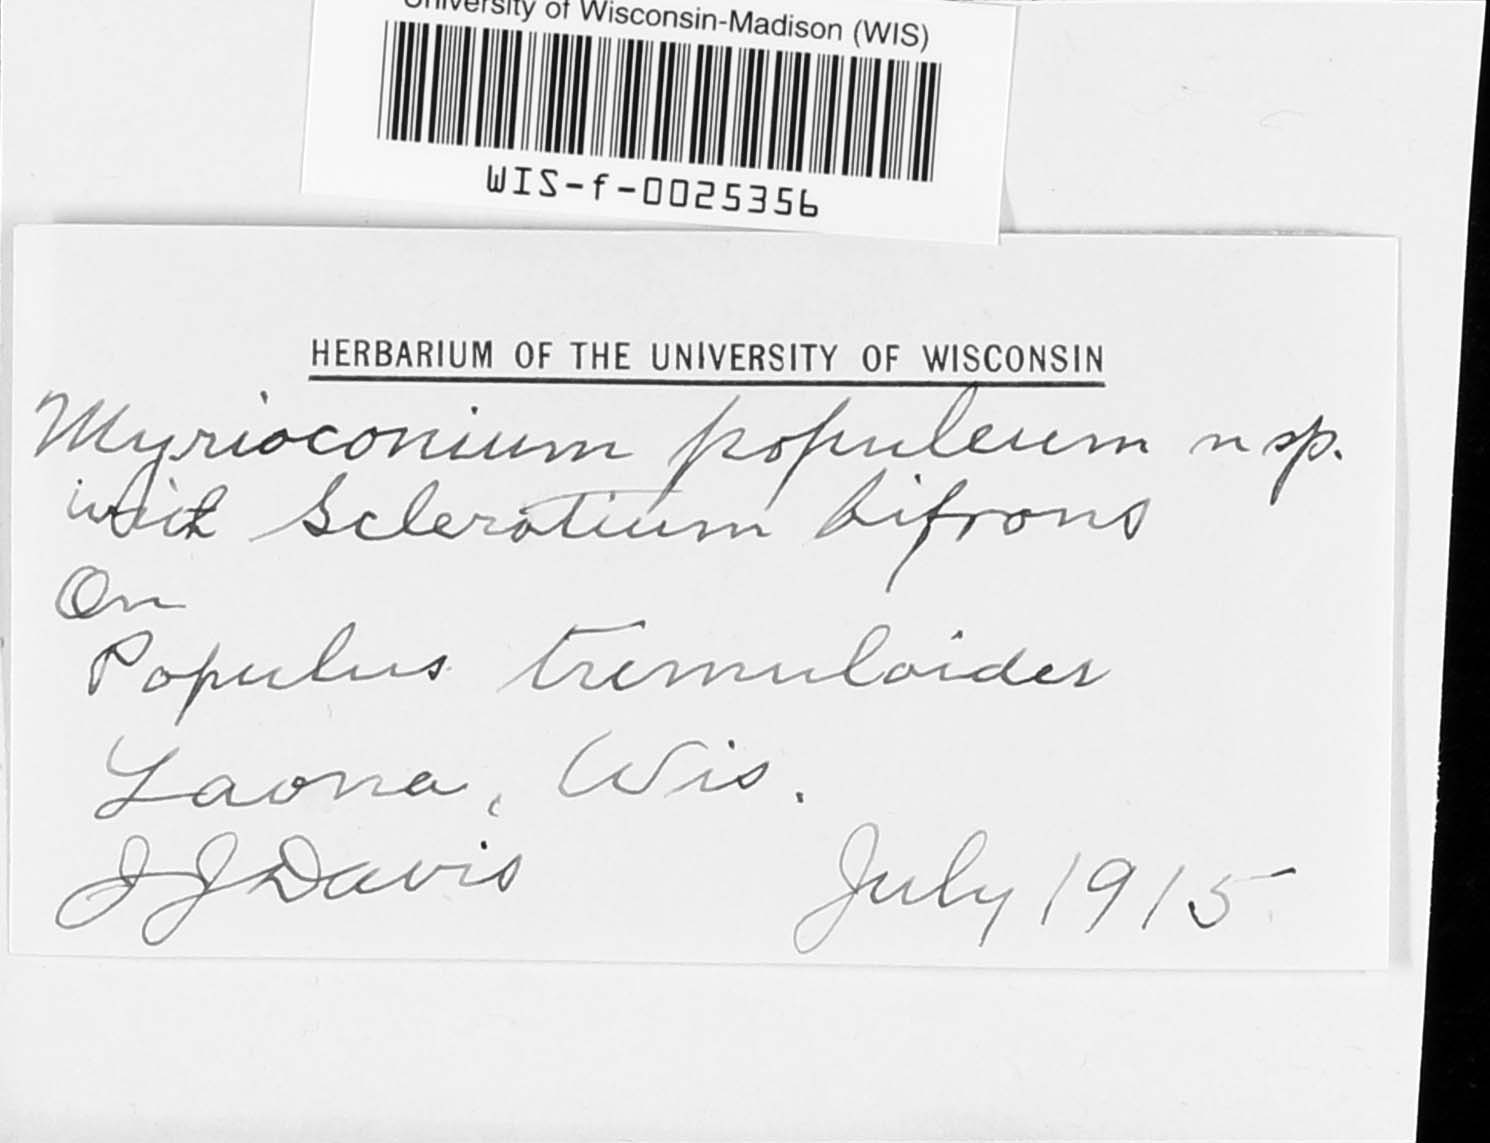 University of Wisconsin-Madison (WIS)
WIS-f-0025356
HERBARIUM OF THE UNIVERSITY OF WISCONSIN
Myrioconium populeum n sp.
with Sclerotium bifrons
On
Populus tremuloides
Laona, Wis.
J J Davis July 1915